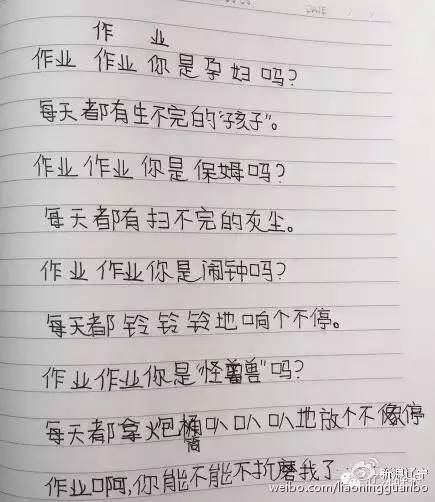 作 业
作业 作业你是孕妇吗?
每天都有生不完的“孩子”。
作业作业你是保姆吗?
每天都有扫不完的灰尘。
作业 作业你是闹钟吗?
每天都铃铃铃地响个不停。
作业作业你是“怪兽”吗?
每天都拿炮筒叭叭叭地放个不停
作业啊,你能不能不折磨我了
新浪辽宁
weibo.com/liaoningguanbo